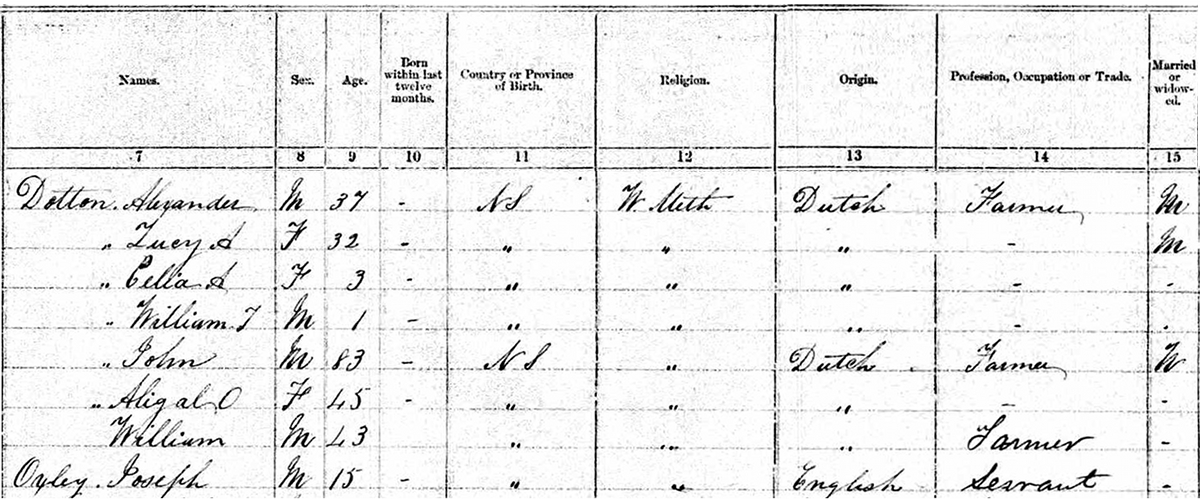 Names. Sex. Age. Born within last twelve months. Country or Province of Birth. Religion. Origin. Profession, Occupation or Trade. Married or widow-ed.
7 8 9 10 11 12 13 14 15
Dotton Alexander M 37 - NS W. Meth Dutch Farmer M
" Lucy A F 32 - " " " - M
" Celia A F 3 - " " " - -
" William T M 1 - " " " - -
" John M 83 - NS " Dutch Farmer W
" Abigal O F 45 - " " " - -
William M 43 " " " Farmer -
Oxley Joseph M 15 - " " English Servant -